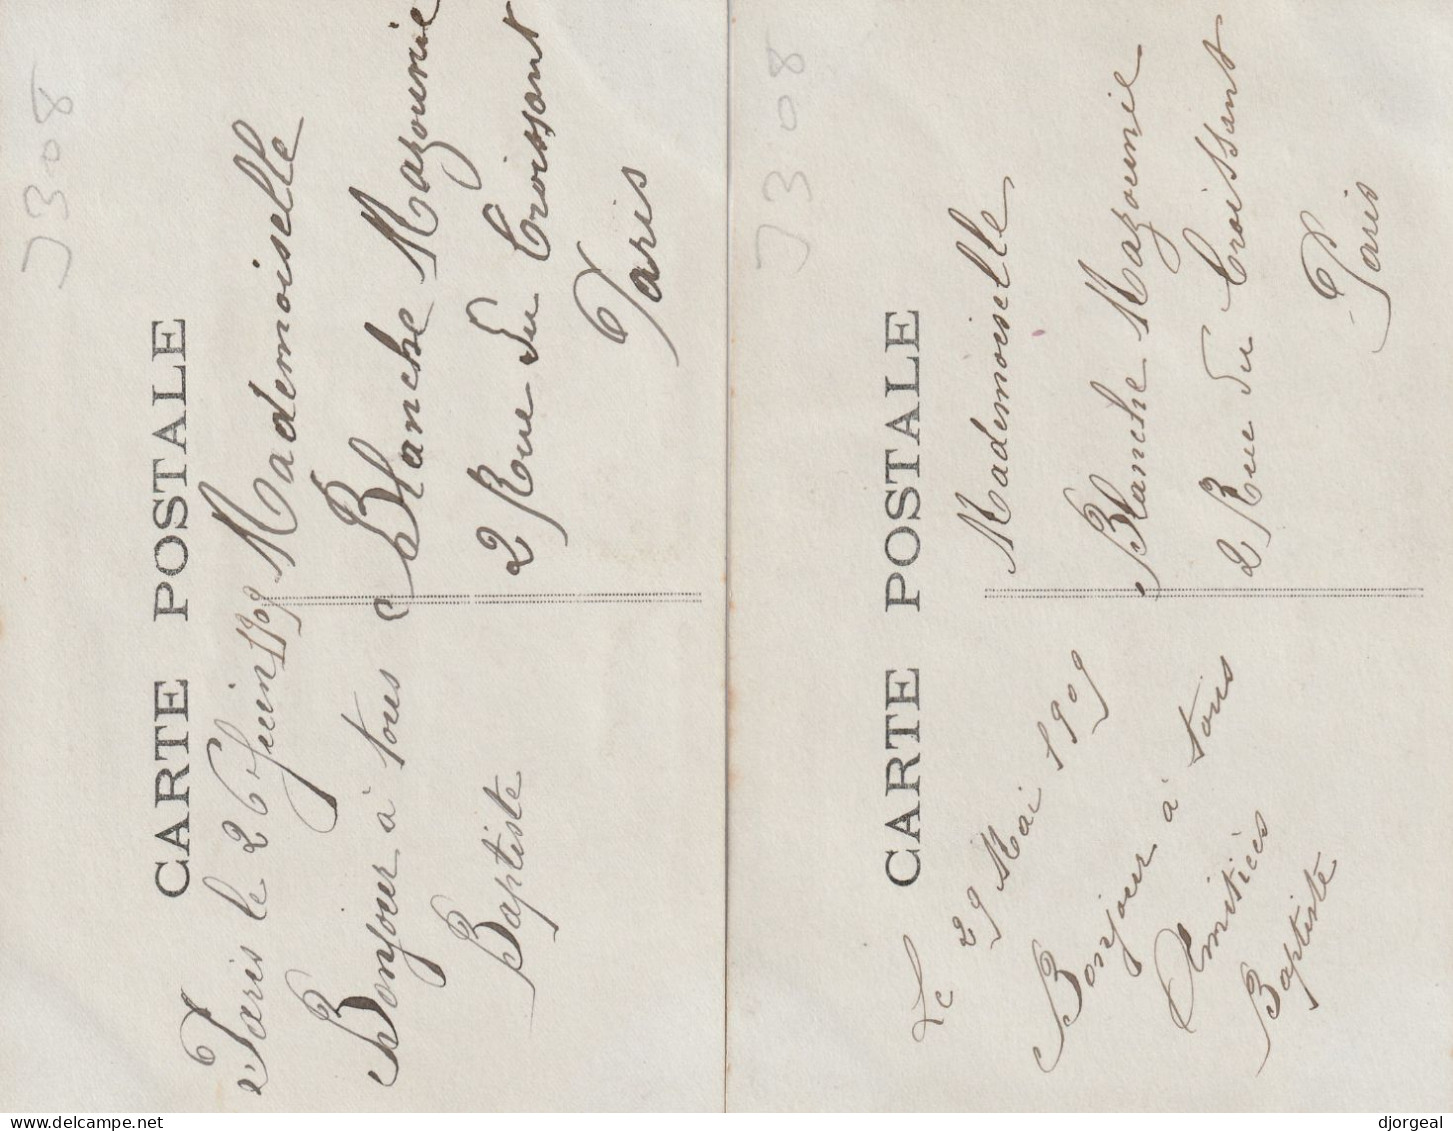 J308
CARTE POSTALE
Paris le 26 Juin 1909
Bonjour à tous
Baptiste
Mademoiselle
Blanche Mazounie
2 Rue du Croissant
Paris
J308
CARTE POSTALE
Le 29 Mai 1909
Bonjour à tous
Amitiées
Baptiste
Mademoiselle
Blanche Mazounie
2 Rue du Croissant
Paris
www.delcampe.net
djorgeal